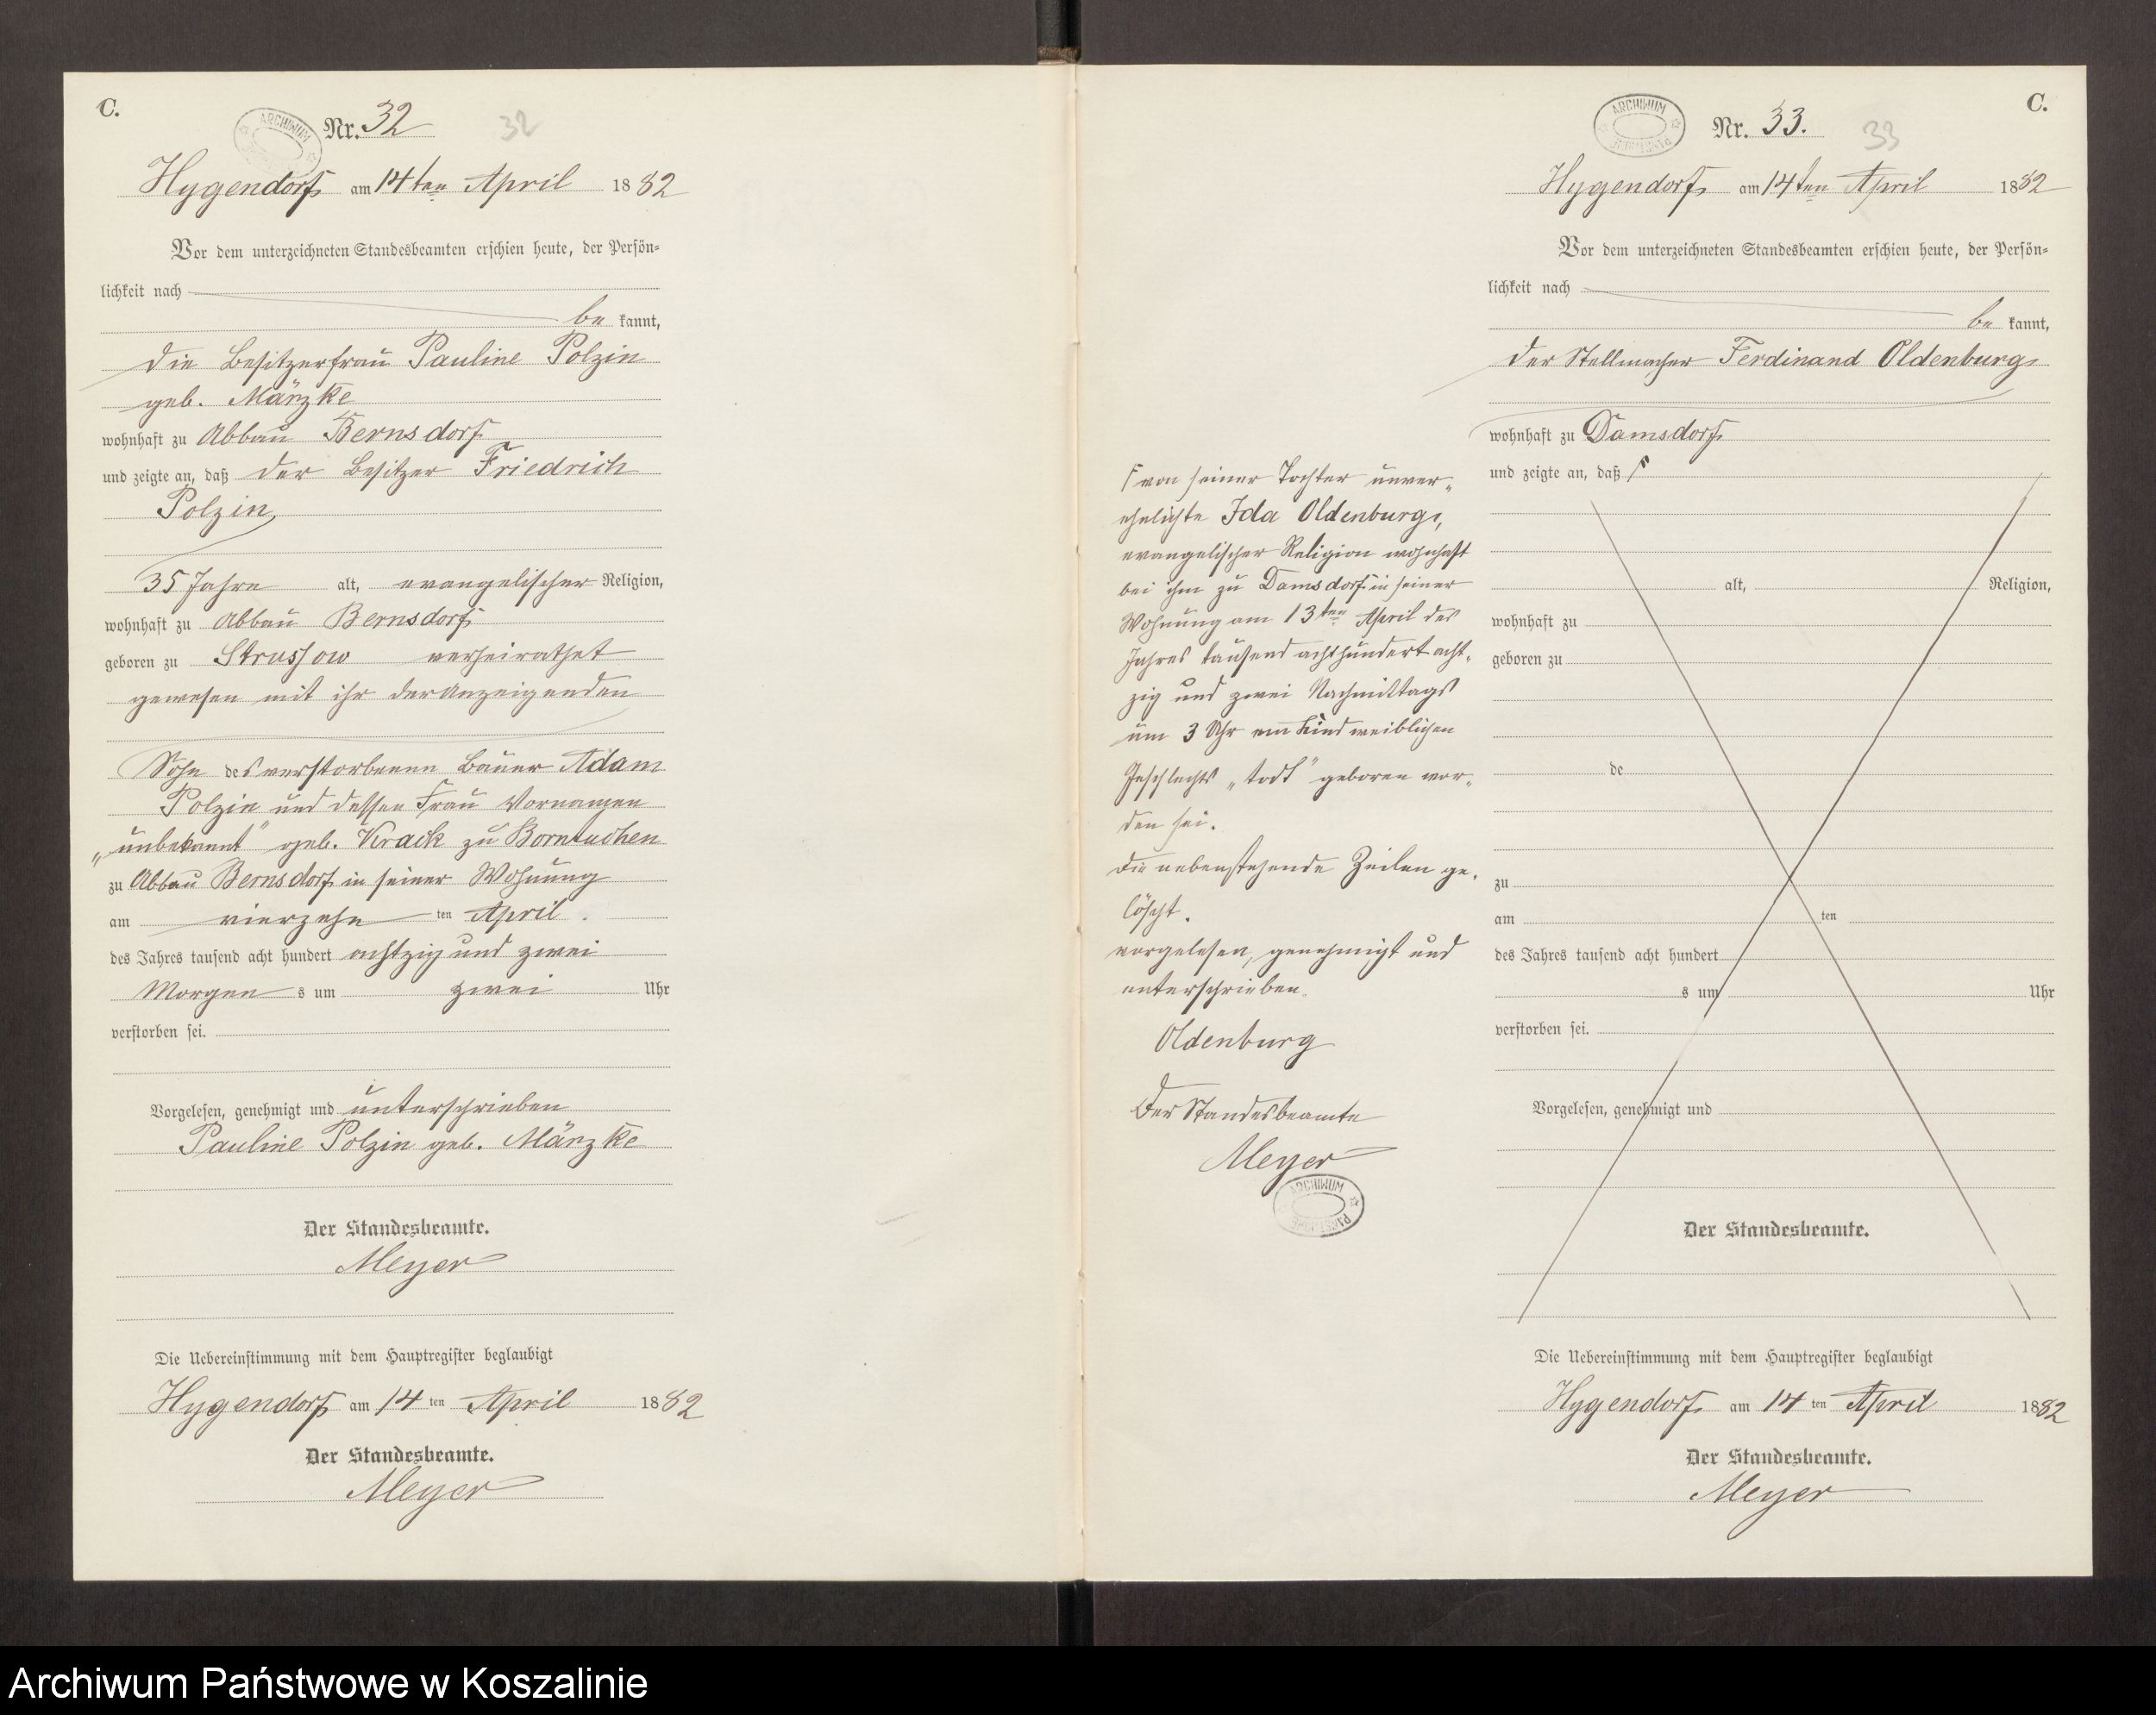 C.
Nr. 32
32
Hygendorf am 14ten April 1882
Vor dem unterzeichneten Standesbeamten erschien heute, der Persön-
lichkeit nach
be kannt,
die Besitzerfrau Pauline Polzin
geb. Mänzke
wohnhaft zu Abbau Bernsdorf
und zeigte an, daß der Besitzer Friedrich
Polzin,
35 Jahre alt, evangelischer Religion,
wohnhaft zu Abbau Bernsdorf
geboren zu Strussow verheirathet
gewesen mit ihr der Anzeigenden
Sohn des verstorbenen Bauer Adam
Polzin und dessen Frau Vornamen
„unbekannt" geb. Krack zu Borntuchen
zu Abbau Bernsdorf in seiner Wohnung
am vierzehn ten April
des Jahres tausend acht hundert achtzig und zwei
Morgen s um zwei Uhr
verstorben sei.
Vorgelesen, genehmigt und unterschrieben
Pauline Polzin geb. Mänzke
Der Standesbeamte.
Meyer
Die Uebereinstimmung mit dem Hauptregister beglaubigt
Hygendorf am 14 ten April 1882
Der Standesbeamte.
Meyer
C.
ARCHIWUM
Nr. 33.
33
Hygendorf am 14ten April 1882
Vor dem unterzeichneten Standesbeamten erschien heute, der Persön-
lichkeit nach
be kannt,
der Stellmacher Ferdinand Oldenburg
wohnhaft zu Damsdorf
und zeigte an, daß
alt, Religion,
wohnhaft zu
geboren zu
de
zu
am ten
des Jahres tausend acht hundert
s um Uhr
verstorben sei.
Vorgelesen, genehmigt und
Der Standesbeamte.
von seiner Tochter unver-
ehelichte Ida Oldenburg,
evangelischer Religion wohnhaft
bei ihm zu Damsdorf in seiner
Wohnung am 13ten April des
Jahres tausend achthundert acht-
zig und zwei Nachmittags
um 3 Uhr ein Kind weiblichen
Geschlechts „todt" geboren wor-
den sei.
Die nebenstehende Zeilen ge-
löscht.
vorgelesen, genehmigt und
unterschrieben.
Oldenburg
Der Standesbeamte
Meyer
ARCHIWUM
Die Uebereinstimmung mit dem Hauptregister beglaubigt
Hygendorf am 14 ten April 1882
Der Standesbeamte.
Meyer
Archiwum Państwowe w Koszalinie